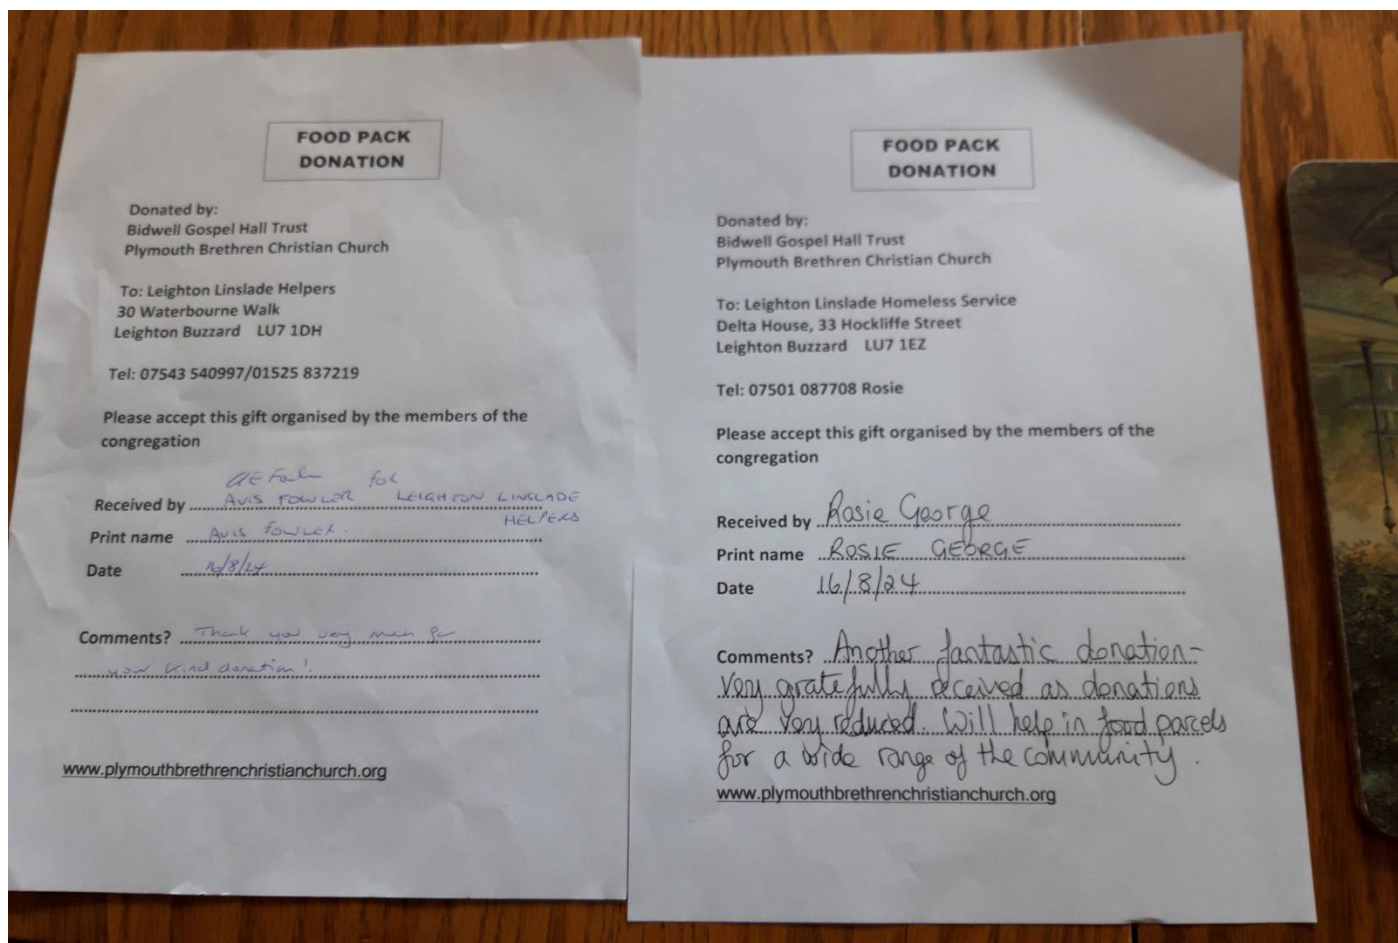 FOOD PACK
DONATION
Donated by:
Bidwell Gospel Hall Trust
Plymouth Brethren Christian Church
To: Leighton Linslade Helpers
30 Waterbourne Walk
Leighton Buzzard LU7 1DH
Tel: 07543 540997/01525 837219
Please accept this gift organised by the members of the
congregation
for
Received by AVIS FOWLER LEIGHTON LINSLADE
HELPERS
Print name AVIS FOWLER.
Date 16/8/24
Comments? Thank you very much for
your kind donation!
www.plymouthbrethrenchristianchurch.org
FOOD PACK
DONATION
Donated by:
Bidwell Gospel Hall Trust
Plymouth Brethren Christian Church
To: Leighton Linslade Homeless Service
Delta House, 33 Hockliffe Street
Leighton Buzzard LU7 1EZ
Tel: 07501 087708 Rosie
Please accept this gift organised by the members of the
congregation
Received by Rosie George
Print name ROSIE GEORGE
Date 16/8/24
Comments? Another fantastic donation-
very gratefully received as donations
are very reduced. Will help in food parcels
for a wide range of the community.
www.plymouthbrethrenchristianchurch.org